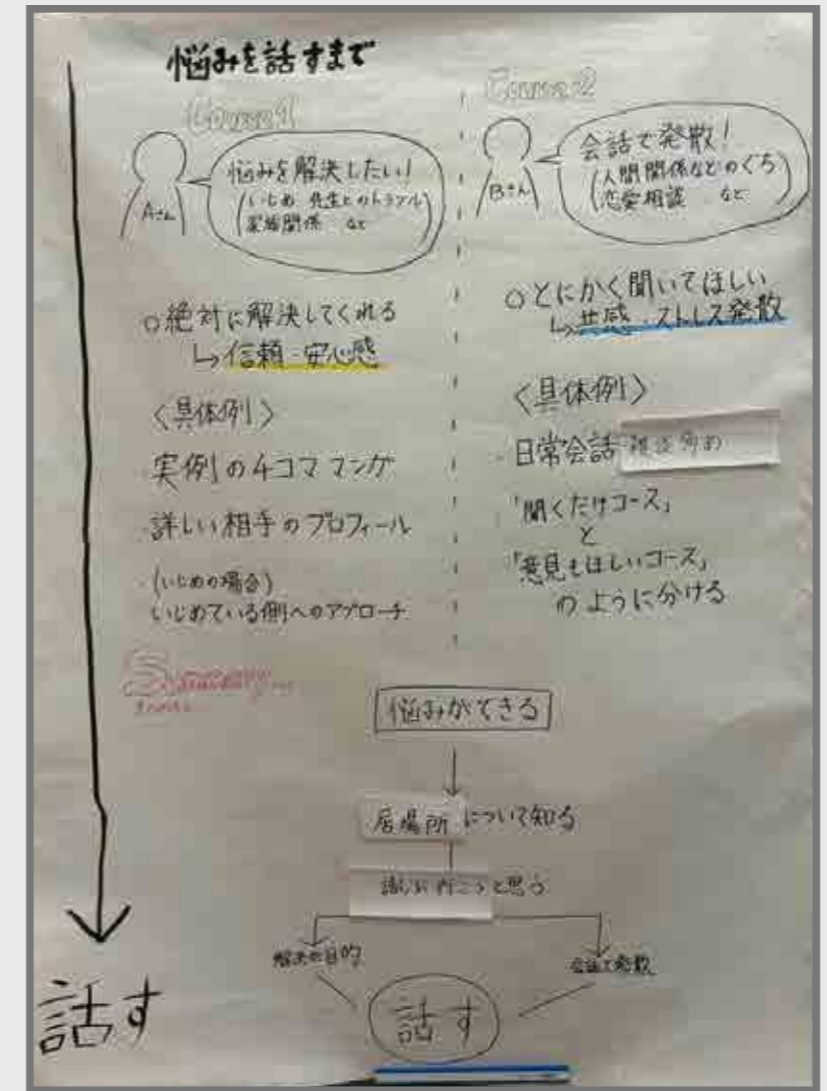 悩みを話すまで
Course1
Aさん
悩みを解決したい!
(いじめ 先生とのトラブル
家族関係 など)
○絶対に解決してくれる
↳信頼・安心感
〈具体例〉
・実例の4コママンガ
・詳しい相手のプロフィール
・(いじめの場合)
いじめている側へのアプローチ
Course2
Bさん
会話で発散!
(人間関係などのぐち
恋愛相談 など)
○とにかく聞いてほしい
↳共感・ストレス発散
〈具体例〉
・日常会話
・「聞くだけコース」
と
「意見もほしいコース」
のように分ける
Summary...
悩みができる
居場所について知る
話しに行こうと思う
解決が目的
会話で発散
話す
話す